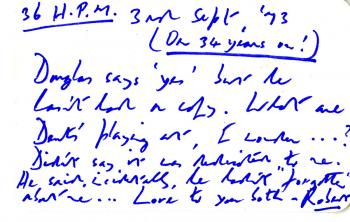 36 H.P.M. 3rd Sept '73
(On 34 years on!)
Douglas says 'yes' but he
hasn't had a copy. What are
Dent's playing at, I wonder...?
Didn't say it was dedicated to me.
He said, incidentally, he hadn't 'forgotten'
about me... Love to you both - Robert